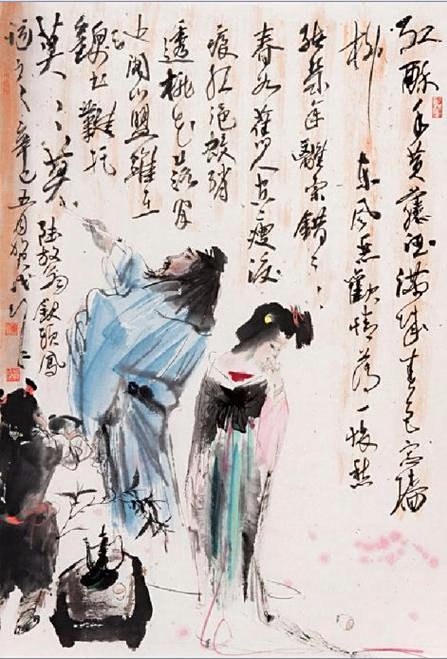 红酥手黄藤酒满城春色宫墙
柳 东风恶歡情薄一怀愁
绪几年離索错、、
春如舊人空瘦泪
痕红浥鲛绡
透桃花落闲
池阁山盟雖在
錦书難托
莫、、莫
陆放翁钗頭鳳
辛巳五月